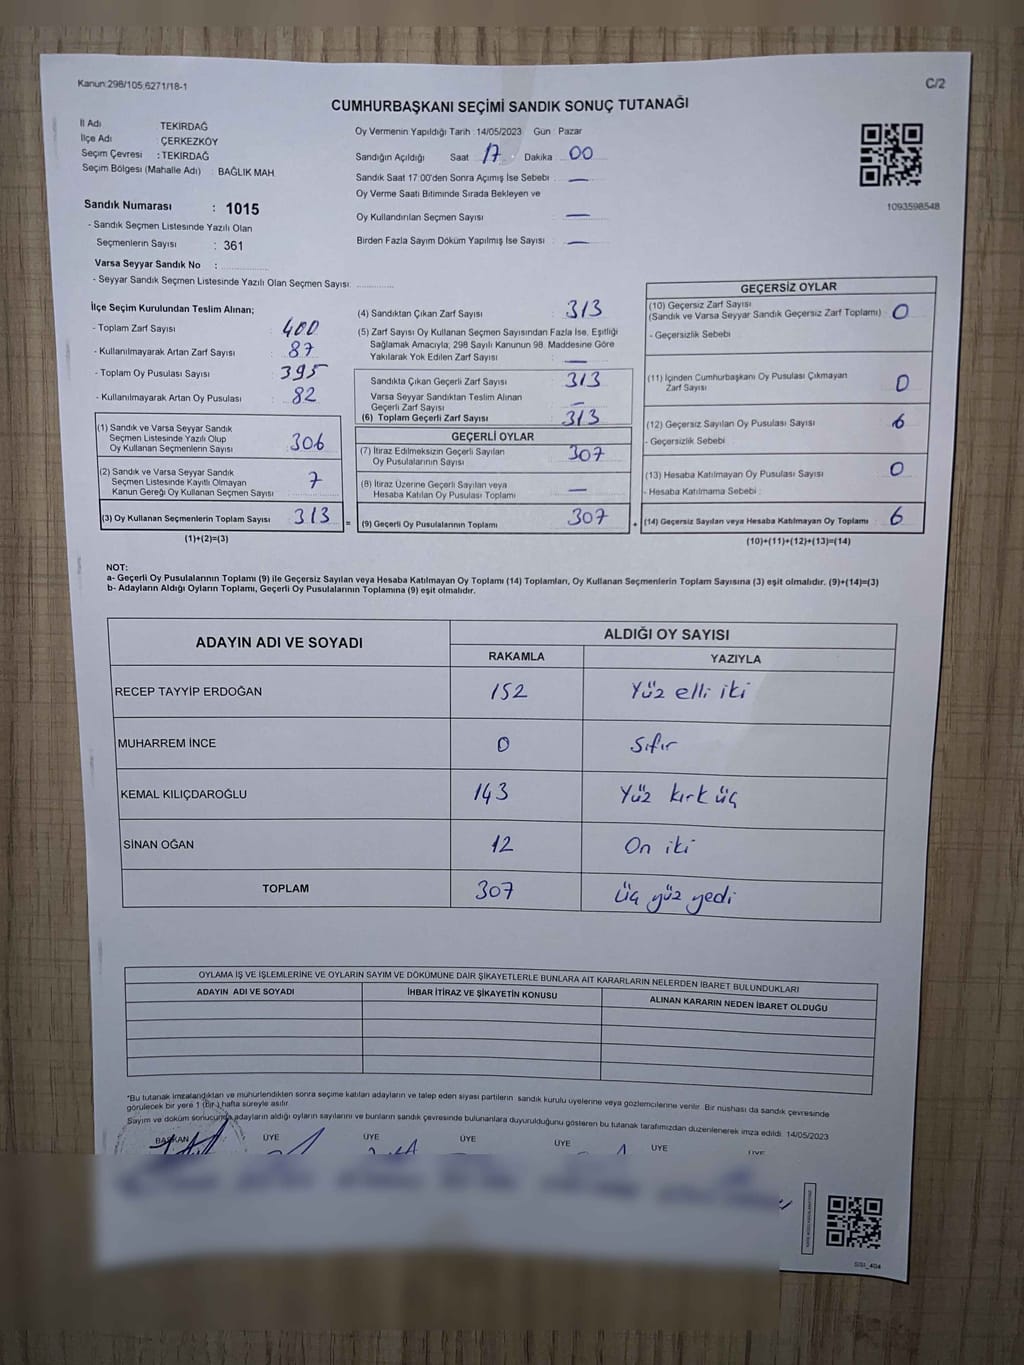 Kanun:298/105;6271/18-1
C/2
CUMHURBAŞKANI SEÇİMİ SANDIK SONUÇ TUTANAĞI
İl Adı TEKİRDAĞ
İlçe Adı : ÇERKEZKÖY
Seçim Çevresi : TEKİRDAĞ
Seçim Bölgesi (Mahalle Adı) : BAĞLIK MAH.
Sandık Numarası : 1015
- Sandık Seçmen Listesinde Yazılı Olan
Seçmenlerin Sayısı : 361
Varsa Seyyar Sandık No :
- Seyyar Sandık Seçmen Listesinde Yazılı Olan Seçmen Sayısı:
Oy Vermenin Yapıldığı Tarih : 14/05/2023 Gün : Pazar
Sandığın Açıldığı Saat 17 Dakika 00
Sandık Saat 17:00'den Sonra Açımış İse Sebebi : —
Oy Verme Saati Bitiminde Sırada Bekleyen ve
Oy Kullandırılan Seçmen Sayısı : —
Birden Fazla Sayım Döküm Yapılmış İse Sayısı : —
1093598548
İlçe Seçim Kurulundan Teslim Alınan;
- Toplam Zarf Sayısı : 400
- Kullanılmayarak Artan Zarf Sayısı : 87
- Toplam Oy Pusulası Sayısı : 395
- Kullanılmayarak Artan Oy Pusulası : 82
(1) Sandık ve Varsa Seyyar Sandık
Seçmen Listesinde Yazılı Olup
Oy Kullanan Seçmenlerin Sayısı 306
(2) Sandık ve Varsa Seyyar Sandık
Seçmen Listesinde Kayıtlı Olmayan
Kanun Gereği Oy Kullanan Seçmen Sayısı 7
(3) Oy Kullanan Seçmenlerin Toplam Sayısı 313
(1)+(2)=(3)
(4) Sandıktan Çıkan Zarf Sayısı : 313
(5) Zarf Sayısı Oy Kullanan Seçmen Sayısından Fazla İse, Eşitliği
Sağlamak Amacıyla; 298 Sayılı Kanunun 98. Maddesine Göre
Yakılarak Yok Edilen Zarf Sayısı : —
Sandıkta Çıkan Geçerli Zarf Sayısı : 313
Varsa Seyyar Sandıktan Teslim Alınan
Geçerli Zarf Sayısı : —
(6) Toplam Geçerli Zarf Sayısı : 313
GEÇERLİ OYLAR
(7) İtiraz Edilmeksizin Geçerli Sayılan
Oy Pusulalarının Sayısı 307
(8) İtiraz Üzerine Geçerli Sayılan veya
Hesaba Katılan Oy Pusulası Toplamı —
= (9) Geçerli Oy Pusulalarının Toplamı 307 +
GEÇERSİZ OYLAR
(10) Geçersiz Zarf Sayısı
(Sandık ve Varsa Seyyar Sandık Geçersiz Zarf Toplamı) : 0
- Geçersizlik Sebebi
(11) İçinden Cumhurbaşkanı Oy Pusulası Çıkmayan
Zarf Sayısı 0
(12) Geçersiz Sayılan Oy Pusulası Sayısı 6
- Geçersizlik Sebebi
(13) Hesaba Katılmayan Oy Pusulası Sayısı 0
- Hesaba Katılmama Sebebi :
(14) Geçersiz Sayılan veya Hesaba Katılmayan Oy Toplamı 6
(10)+(11)+(12)+(13)=(14)
NOT:
a- Geçerli Oy Pusulalarının Toplamı (9) ile Geçersiz Sayılan veya Hesaba Katılmayan Oy Toplamı (14) Toplamları, Oy Kullanan Seçmenlerin Toplam Sayısına (3) eşit olmalıdır. (9)+(14)=(3)
b- Adayların Aldığı Oyların Toplamı, Geçerli Oy Pusulalarının Toplamına (9) eşit olmalıdır.
ADAYIN ADI VE SOYADI ALDIĞI OY SAYISI
RAKAMLA YAZIYLA
RECEP TAYYİP ERDOĞAN 152 Yüz elli iki
MUHARREM İNCE 0 Sıfır
KEMAL KILIÇDAROĞLU 143 Yüz kırk üç
SİNAN OĞAN 12 On iki
TOPLAM 307 Üç yüz yedi
OYLAMA İŞ VE İŞLEMLERİNE VE OYLARIN SAYIM VE DÖKÜMÜNE DAİR ŞİKAYETLERLE BUNLARA AİT KARARLARIN NELERDEN İBARET BULUNDUKLARI
ADAYIN ADI VE SOYADI İHBAR İTİRAZ VE ŞİKAYETİN KONUSU ALINAN KARARIN NEDEN İBARET OLDUĞU
*Bu tutanak imzalandıktan ve mühürlendikten sonra seçime katılan adayların ve talep eden siyasi partilerin sandık kurulu üyelerine veya gözlemcilerine verilir. Bir nüshası da sandık çevresinde
görülecek bir yere 1 (bir) hafta süreyle asılır.
Sayım ve döküm sonucunda adayların aldığı oyların sayılarını ve bunların sandık çevresinde bulunanlara duyurulduğunu gösteren bu tutanak tarafımızdan düzenlenerek imza edildi. 14/05/2023
BAŞKAN ÜYE ÜYE ÜYE ÜYE ÜYE ÜYE
SSI_404